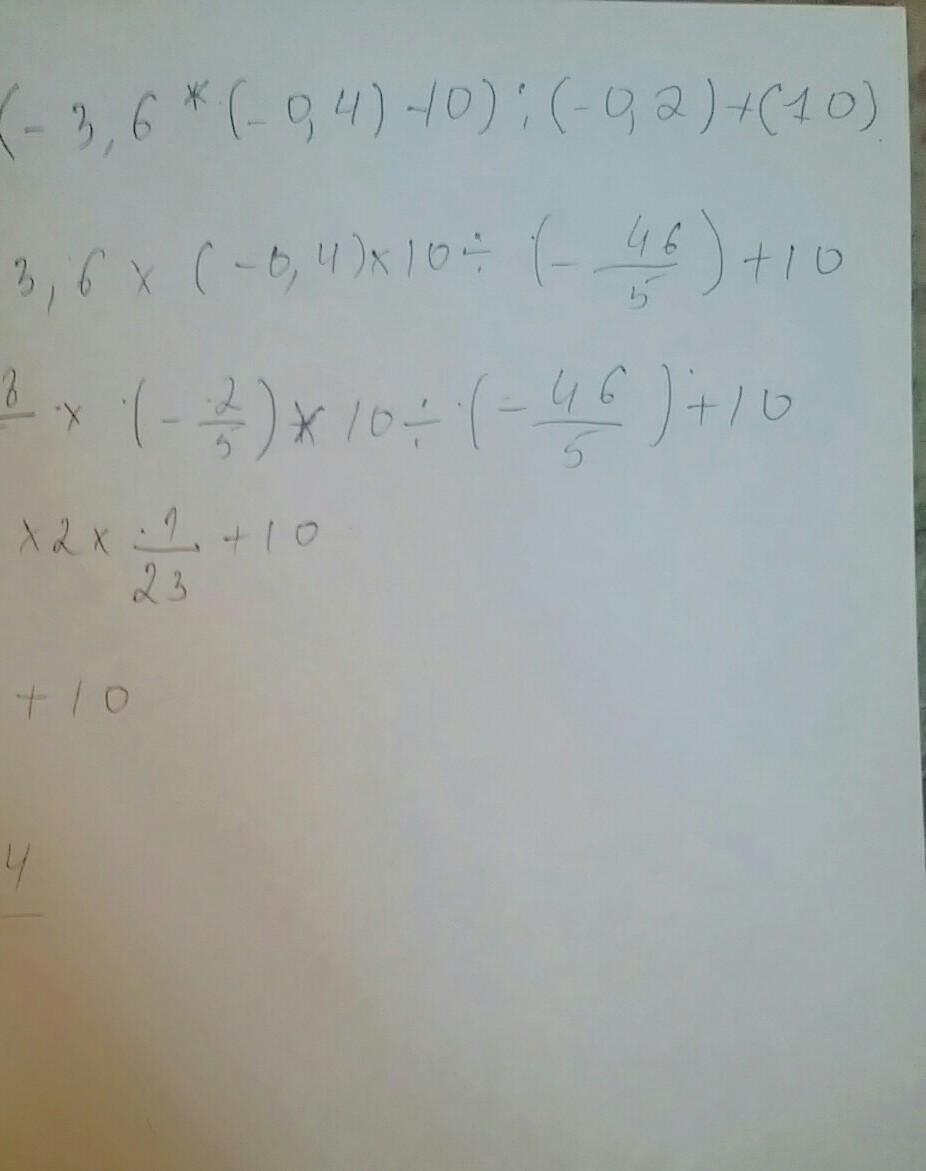 (-3,6*(-0,4)-10):(-0,2)+(10)
3,6 x (-0,4)x10÷ (- 46/5) +10
x (- 2/5) x 10÷(- 46/5) +10
x2x 1/23 +10
+10
4